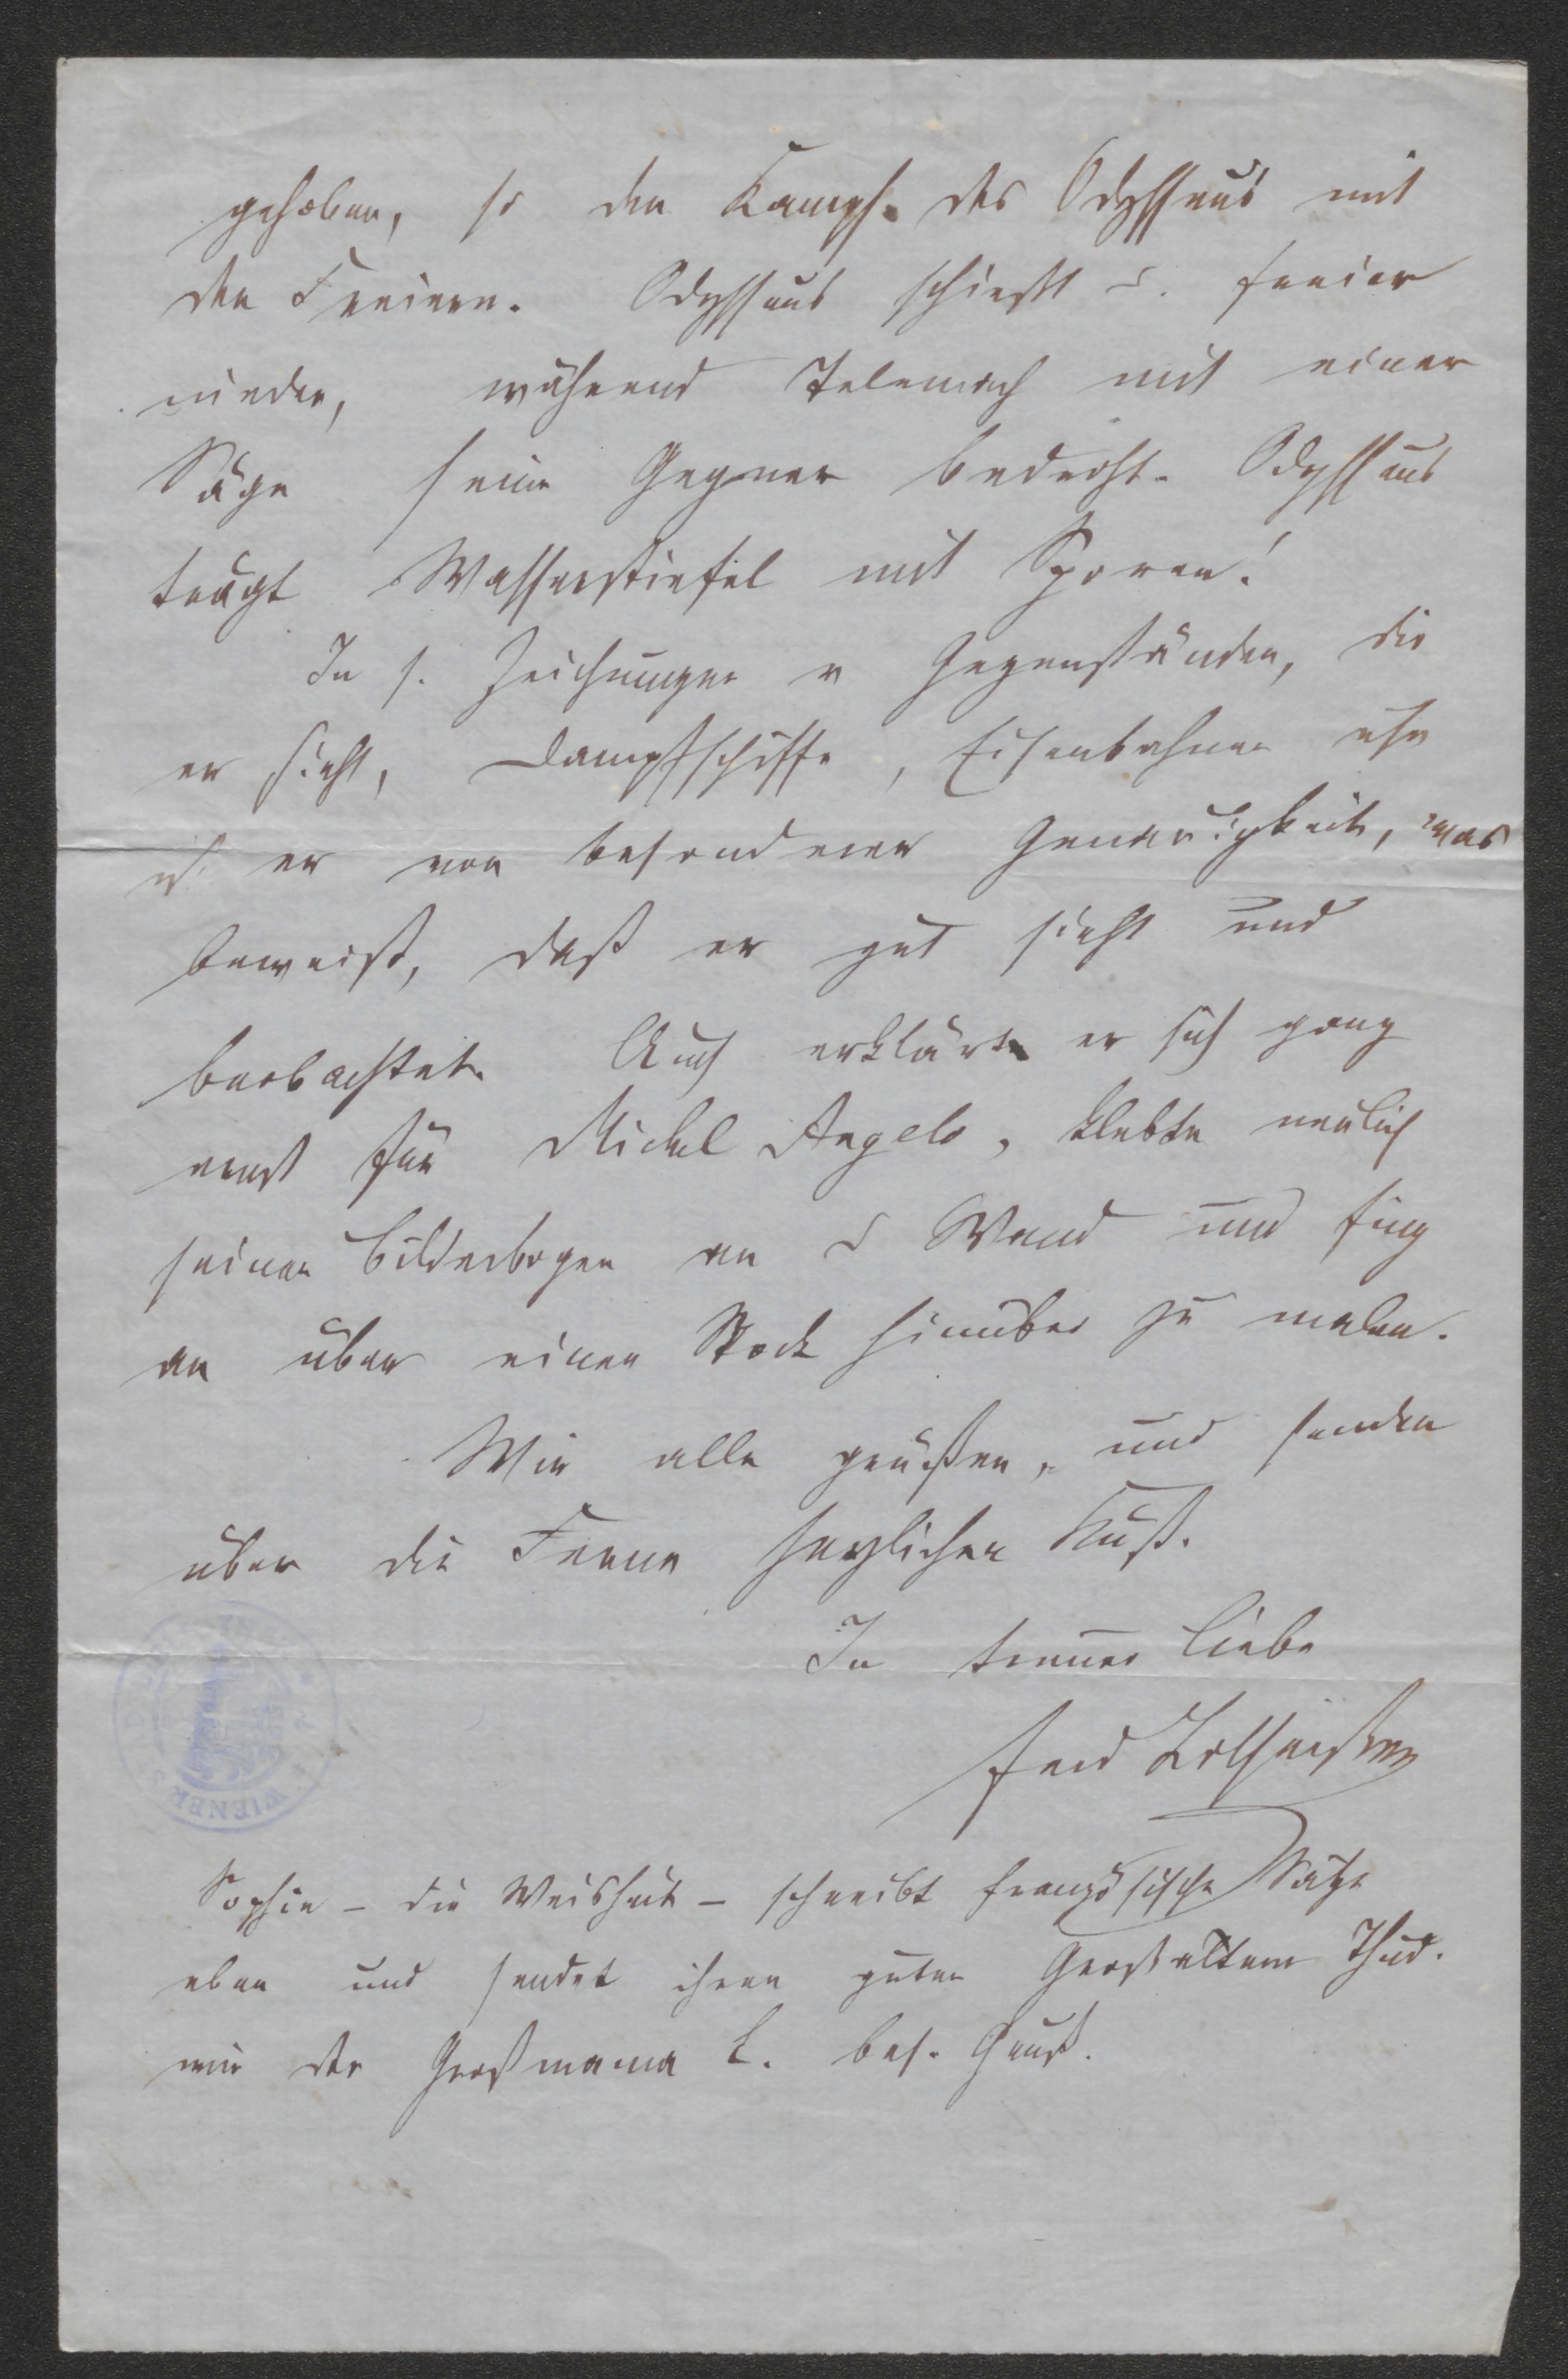 gehoben, so den Kampf des Odysseus mit
den Freiern. Odysseus schießt d. Freier
nieder, während Telemach mit einer
Säge seine Gegner bedroht. Odysseus
trägt Wasserstiefel mit Sporen!
In s. Zeichnungen v Gegenständen, die
er sieht, Dampfschiffe, Eisenbahnen usw
ist er von besonderer Genauigkeit, was
beweist, daß er gut sieht und
beobachtet. Auch erklärt er sich ganz
ernst für Michel Angelo, klebte neulich
seinen Bilderbogen an d Wand und fing
an über einen Stock hinüber zu malen.
Wir alle grüßen, und senden
über die Ferne herzlichen Kuß.
In treuer Liebe
Ferd Lotheißen
Sophie - die Weisheit - schreibt französische Sätze
eben und sendet ihren guten Großeltern Thud.
wie der Großmama L. bes. Gruß.
WIENER